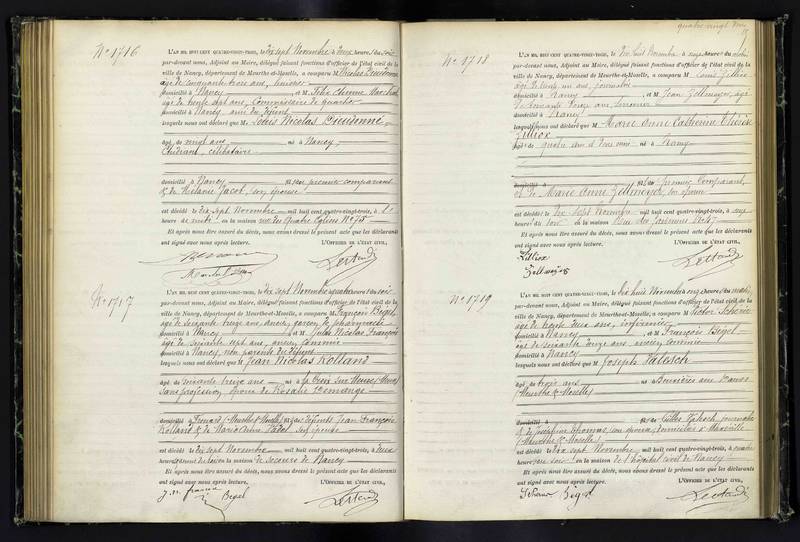 quatre vingt
N° 1716
L'AN MIL HUIT CENT QUATRE-VINGT-TROIS, le dix sept Novembre à deux heures du soir
par-devant nous, Adjoint au Maire, délégué faisant fonctions d'officier de l'état civil de la
ville de Nancy, département de Meurthe-et-Moselle, a comparu M. Nicolas Dieudonné
âgé de cinquante trois ans,
domicilié à Nancy et M. Félix Etienne Marchal
âgé de trente sept ans, Commissaire de quartier
domicilié à Nancy, ami du défunt
lesquels nous ont déclaré que M. Louis Nicolas Dieudonné
âgé de vingt ans né à Nancy
Etudiant, célibataire
domicilié à Nancy fils du premier comparant
& de Mélanie Jacot, son épouse
est décédé le dix sept Novembre mil huit cent quatre-vingt-trois, à
heures en la maison rue des Quatre Eglises N° 75
Et après nous être assuré du décès, nous avons dressé le présent acte que les déclarants
ont signé avec nous après lecture. L'OFFICIER DE L'ÉTAT CIVIL,
N° 1717
L'AN MIL HUIT CENT QUATRE-VINGT-TROIS, le dix sept Novembre à quatre heures du soir
par-devant nous, Adjoint au Maire, délégué faisant fonctions d'officier de l'état civil de la
ville de Nancy, département de Meurthe-et-Moselle, a comparu M. François Bigel
âgé de soixante treize ans, ancien garçon de pharmacie
domicilié à Nancy et M. Jules Nicolas François
âgé de soixante sept ans, ancien commis
domicilié à Nancy, non parents du défunt
lesquels nous ont déclaré que M. Jean Nicolas Rolland
âgé de soixante treize ans né à la Croix sur Meuse (Meuse)
Sans profession, époux de Rosalie
domicilié à (Meurthe & Moselle) fils des défunts Jean François
Rolland & de Marie son épouse
est décédé le dix sept Novembre mil huit cent quatre-vingt-trois, à deux
heures en la maison de secours de Nancy
Et après nous être assuré du décès, nous avons dressé le présent acte que les déclarants
ont signé avec nous après lecture. L'OFFICIER DE L'ÉTAT CIVIL,
J. N. François Bigel
N° 1718
L'AN MIL HUIT CENT QUATRE-VINGT-TROIS, le dix huit Novembre à onze heures du matin
par-devant nous, Adjoint au Maire, délégué faisant fonctions d'officier de l'état civil de la
ville de Nancy, département de Meurthe-et-Moselle, a comparu M. Louis Zilliox
âgé de trente un ans, journalier
domicilié à Nancy et M. Jean Zellmeyer, âgé
de soixante ans,
domicilié à Nancy
lesquels nous ont déclaré que M. Marie Anne Catherine
Zilliox
âgée de quatre ans et deux mois né à Nancy
domicilié à fille du premier Comparant,
et de Marie Anne Zellmeyer, son épouse
est décédée le dix sept Novembre mil huit cent quatre-vingt-trois, à onze
heures du soir en la maison
Et après nous être assuré du décès, nous avons dressé le présent acte que les déclarants
ont signé avec nous après lecture. L'OFFICIER DE L'ÉTAT CIVIL,
Zilliox
Zellmeyer
N° 1719
L'AN MIL HUIT CENT QUATRE-VINGT-TROIS, le dix huit Novembre à onze heures du matin
par-devant nous, Adjoint au Maire, délégué faisant fonctions d'officier de l'état civil de la
ville de Nancy, département de Meurthe-et-Moselle, a comparu M. Victor Scherer
âgé de trente deux ans, infirmier
domicilié à Nancy et M. François Bigel
âgé de soixante treize ans, ancien commis
domicilié à Nancy
lesquels nous ont déclaré que M. Joseph
âgé de trois ans né à
(Meurthe & Moselle)
domicilié à fils de Gilles journalier
& de Joséphine Thomas, son épouse, domiciliés à
(Meurthe & Moselle)
est décédé le dix sept Novembre mil huit cent quatre-vingt-trois, à quatre
heures du soir en la maison de l'hôpital civil de Nancy
Et après nous être assuré du décès, nous avons dressé le présent acte que les déclarants
ont signé avec nous après lecture. L'OFFICIER DE L'ÉTAT CIVIL,
Scherer Bigel